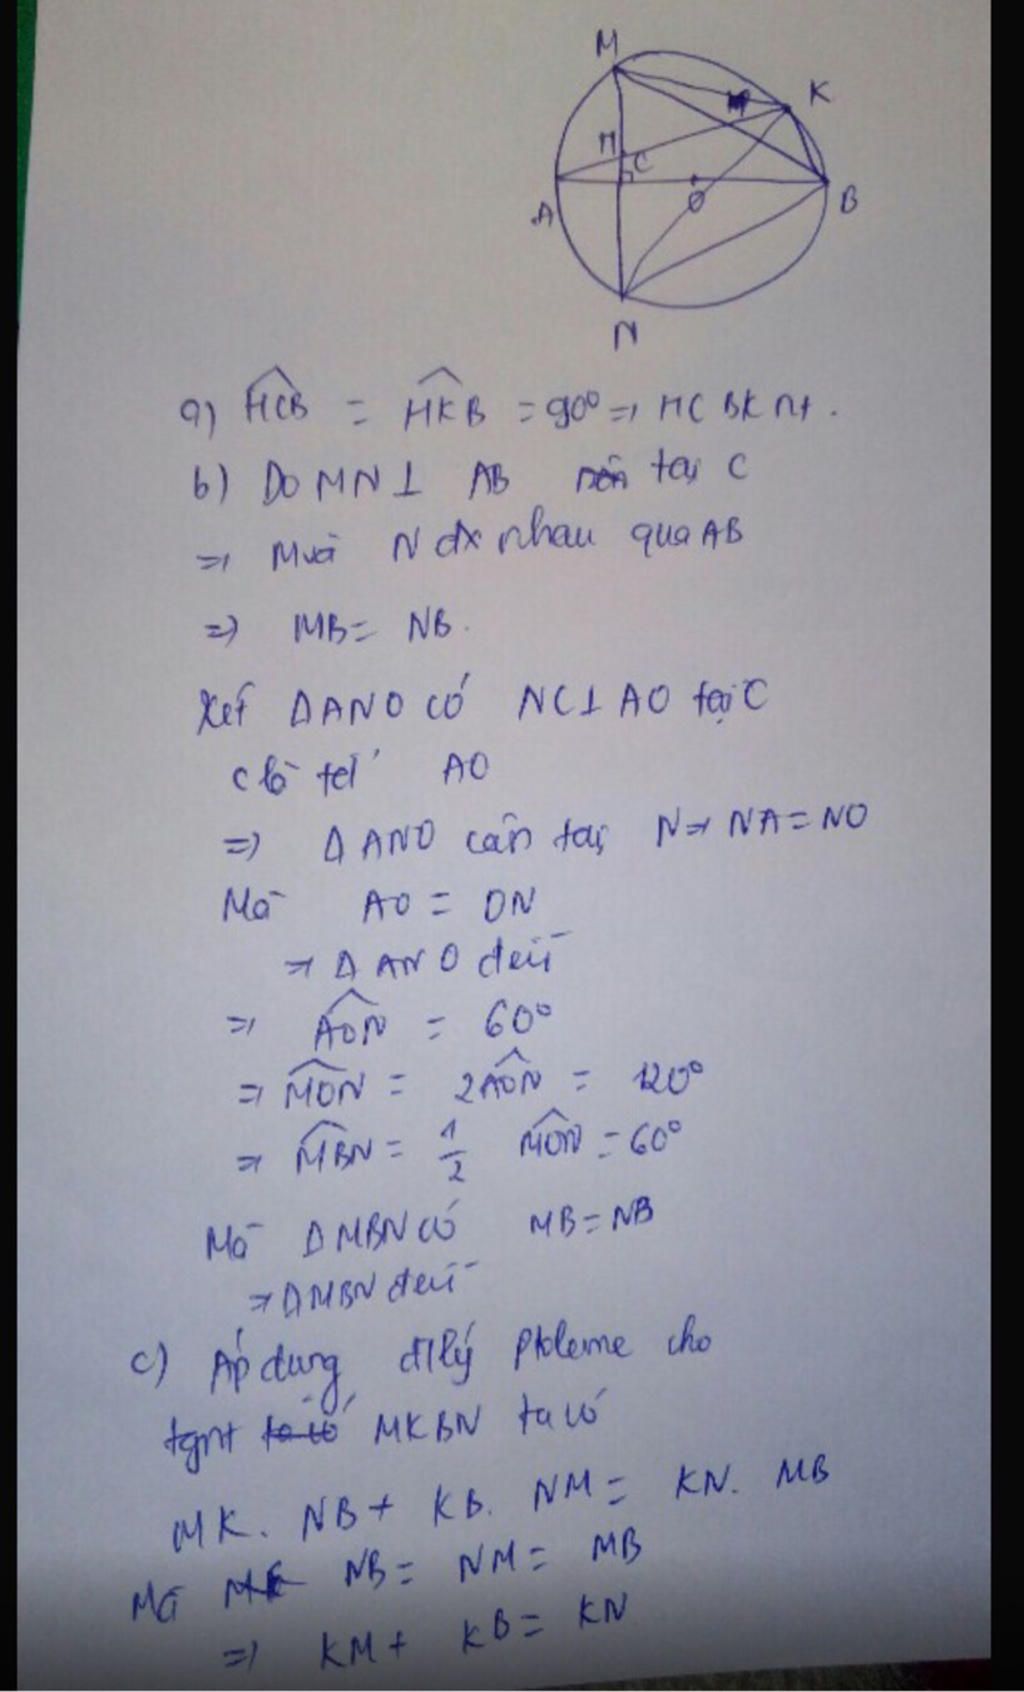 M
K
H
C
A
O
B
N
a) HCB = HKB = 90° => HCBK nt.
b) Do MN ⊥ AB tại C
=> M và N đx nhau qua AB
=> MB = NB.
Xét ΔANO có NC ⊥ AO tại C
C là tđ AO
=> ΔANO cân tại N => NA = NO
Mà AO = ON
=> ΔANO đều
=> AON = 60°
=> MON = 2AON = 120°
=> MBN = 1/2 MON = 60°
Mà ΔMBN có MB = NB
=> ΔMBN đều
c) Áp dụng đlý Ptoleme cho
tgnt ta có MKBN ta có
MK. NB + KB. NM = KN. MB
Mà NB = NM = MB
=> KM + KB = KN